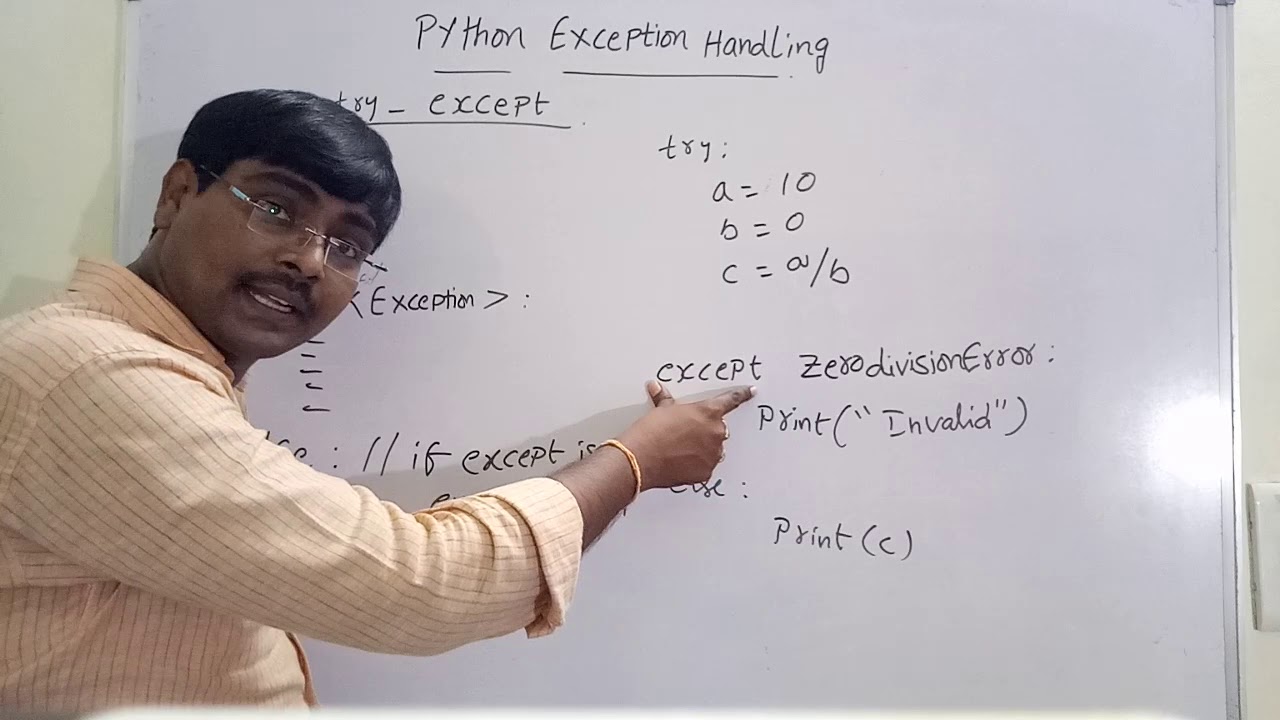 Python Exception Handling
try - except
<Exception> :
: // if except is
try:
a = 10
b = 0
c = a/b
except ZerodivisionError:
Print("Invalid")
else:
Print(c)